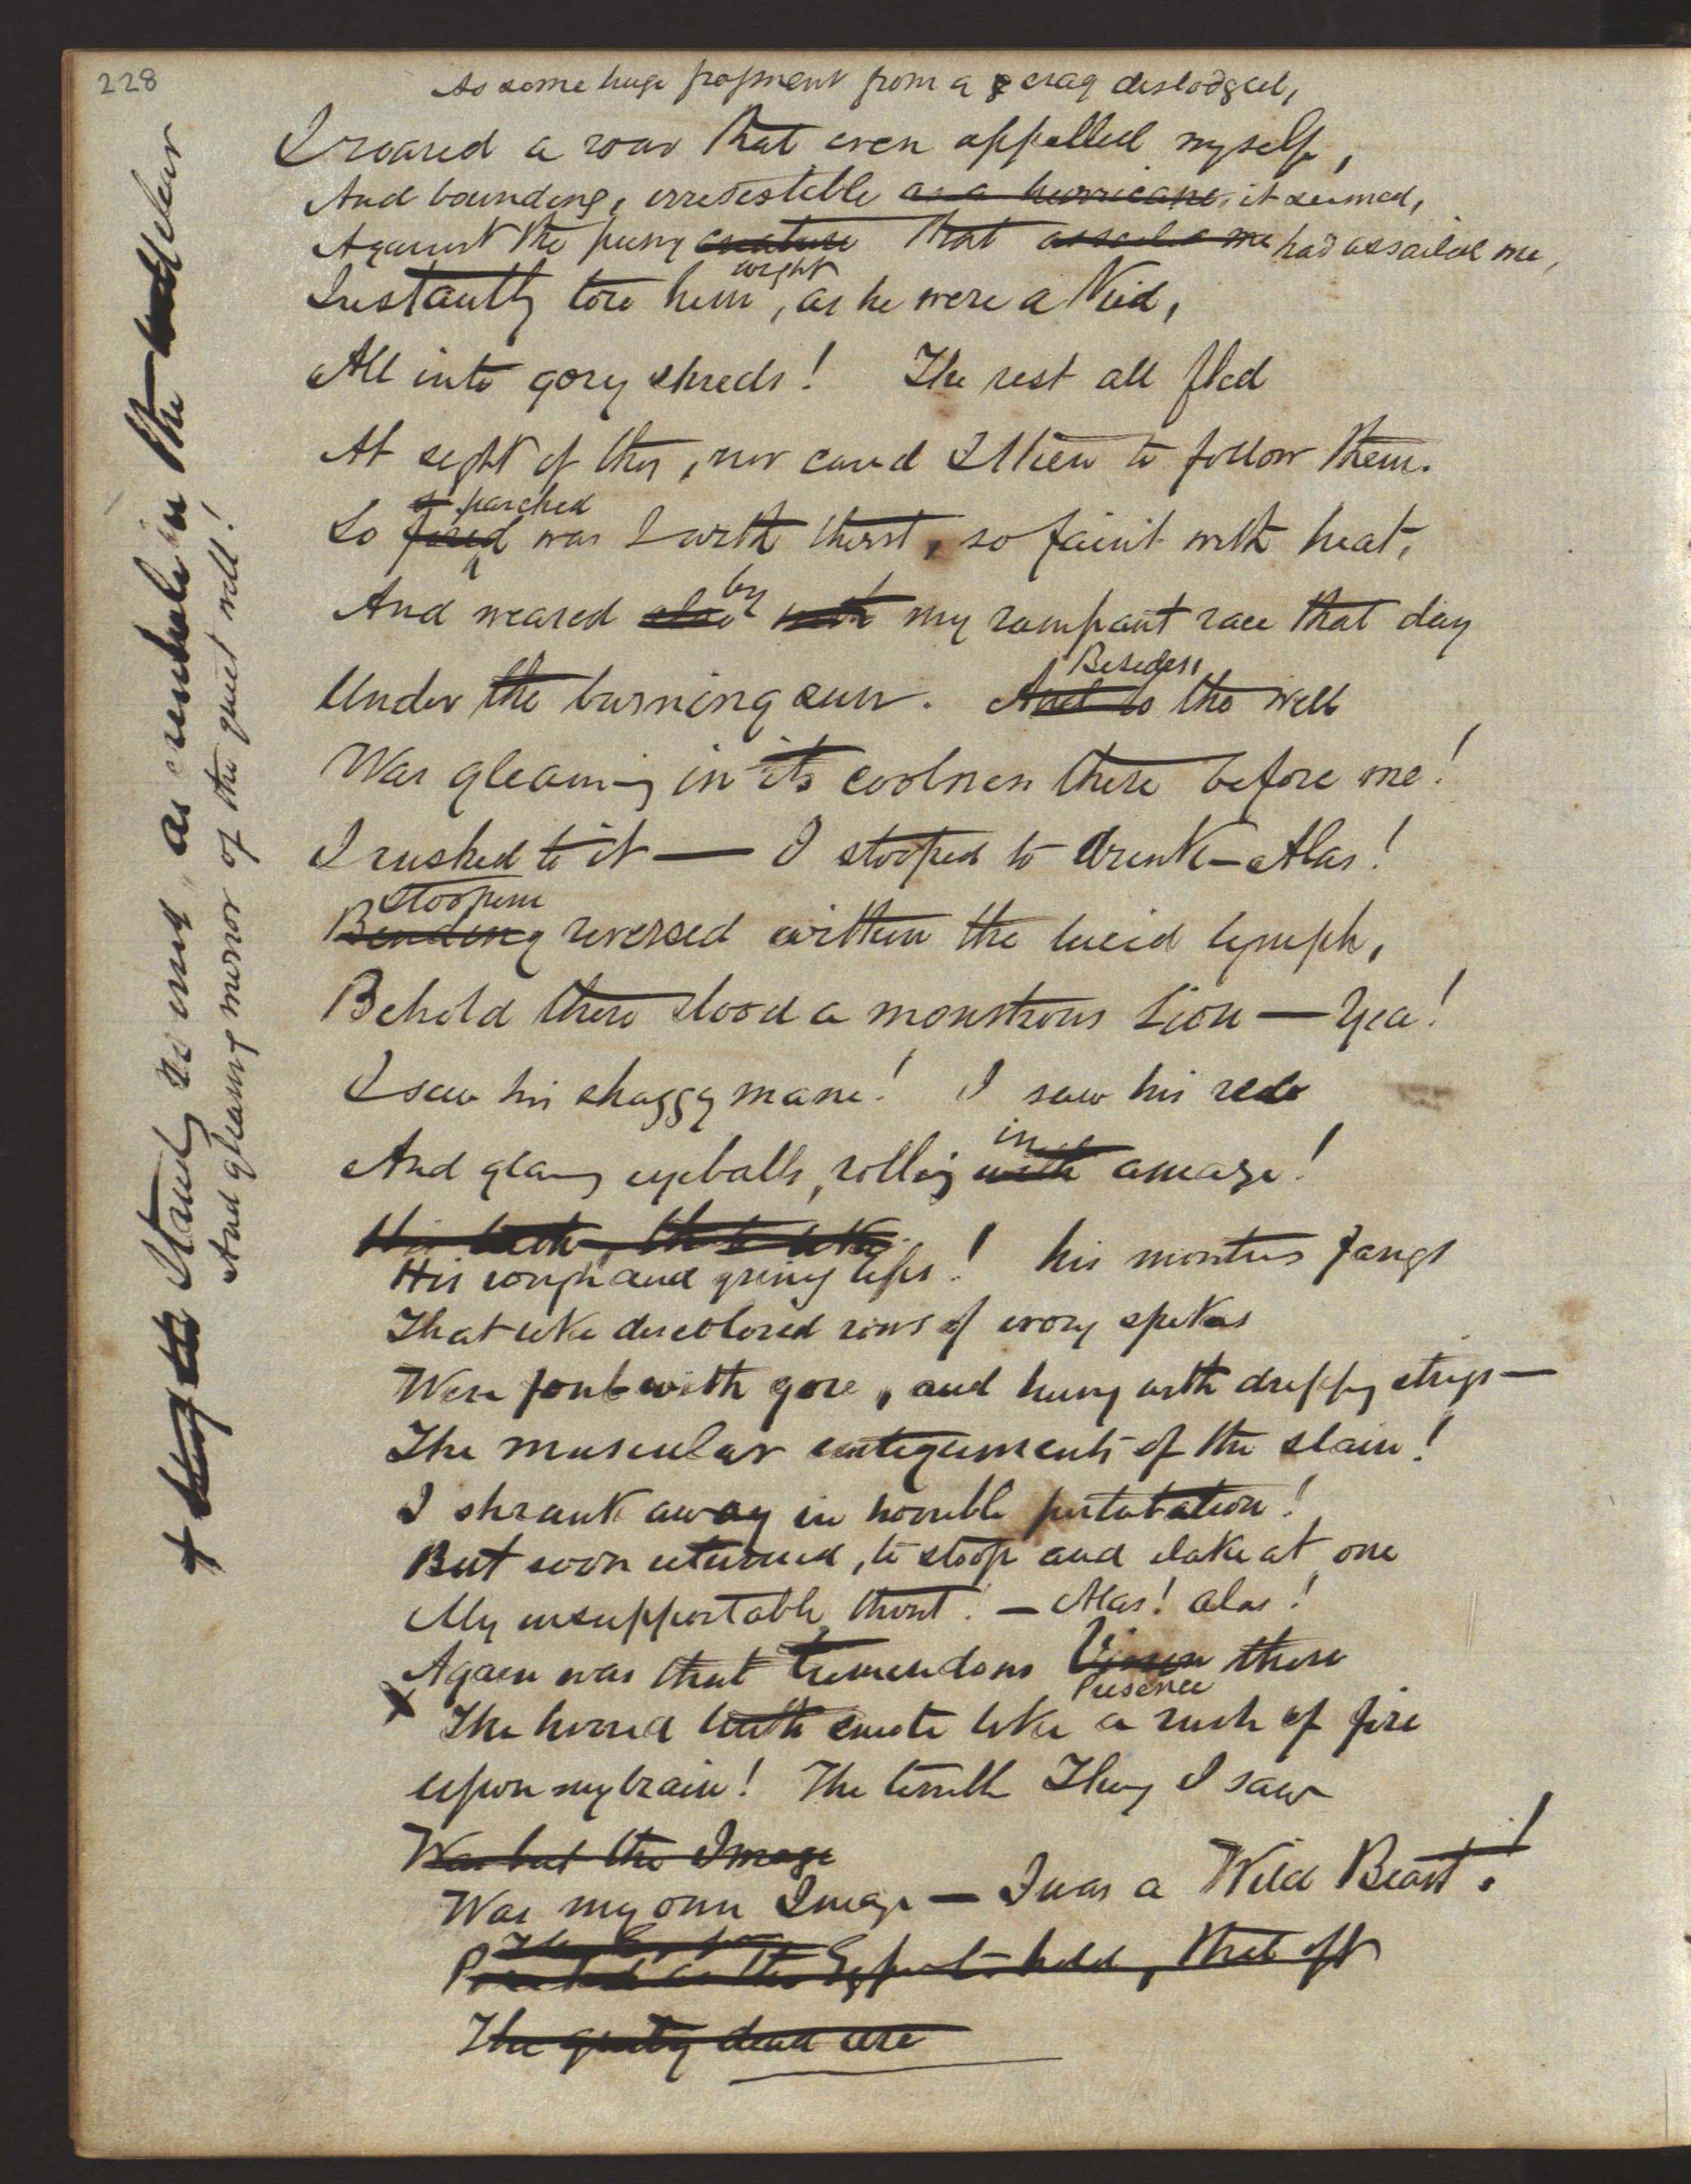 228
As some huge fragment from a crag dislodged,
I roared a roar that even appalled myself,
And bounding, irresistible as a hurricane, it seemed,
Against the puny creature that assails me had assailed me,
wight
Instantly tore him, as he were a Kid,
All into gory shreds! The rest all fled
At sight of this, nor cared I then to follow them.
parched
So fired was I with thirst, so faint with heat,
by
And wearied also with my rampant race that day
Besides,
Under the burning sun. And so the well
Was gleaming in its coolness there before me!
I rushed to it — I stooped to drink — Alas!
Stooping
Bending reversed within the lucid lymph,
Behold there stood a monstrous Lion — Yea!
I saw his shaggy mane! I saw his red
in
And glaring eyeballs, rolling with amaze!
His teeth, that like
His rough and griny lips! his montrus fangs
That like discolored rows of ivory spikes
Were foul with gore, and hung with dripping strips —
The muscular integuments of the slain!
I shrank away in horrible pertubation!
But soon returned, to stoop and slake at once
My insupportable thirst. — Alas! alas!
Again was that tremendous Vision there
Presence
X The horrid truth smote like a rush of fire
upon my brain! The terrible Thing I saw
Was but the Image
Was my own Image — I was a Wild Beast!
as the Egyptians held, that oft
The guilty dead are
Standing as in the clear
And gleaming mirror of the quiet well!